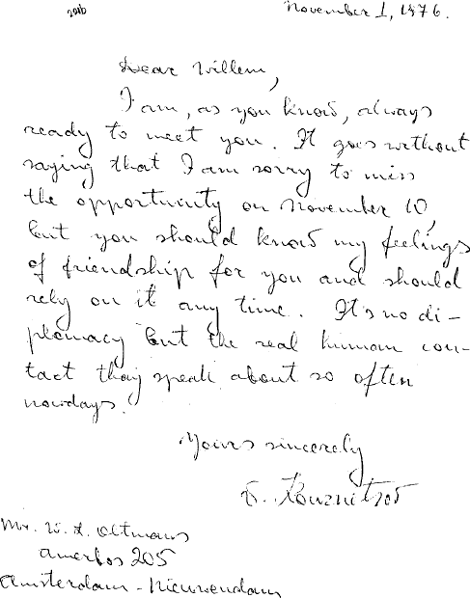 201b
November 1, 1976.
Dear Willem,
I am, as you know, always
ready to meet you. It goes without
saying that I am sorry to miss
the opportunity on November 10,
but you should know my feelings
of friendship for you and should
rely on it any time. It's no di-
plomacy but the real human con-
tact they speak about so often
nowdays.
Yours sincerely
Kouznitsov
Mr. W. L. Oltmans
Amerbos 205
Amsterdam - Nieuwendam